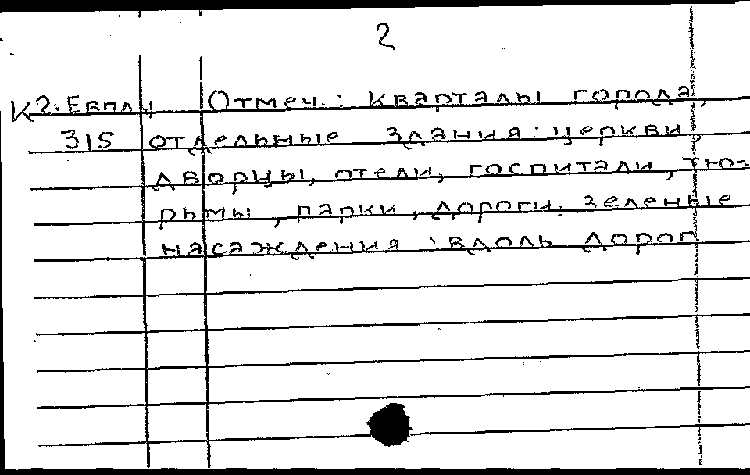 2
К2. Евпл. Отмеч.: кварталы города,
315 отдельные здания: церкви,
дворцы, отели, госпитали, тю-
рьмы, парки, дороги, зеленые
насаждения вдоль дорог